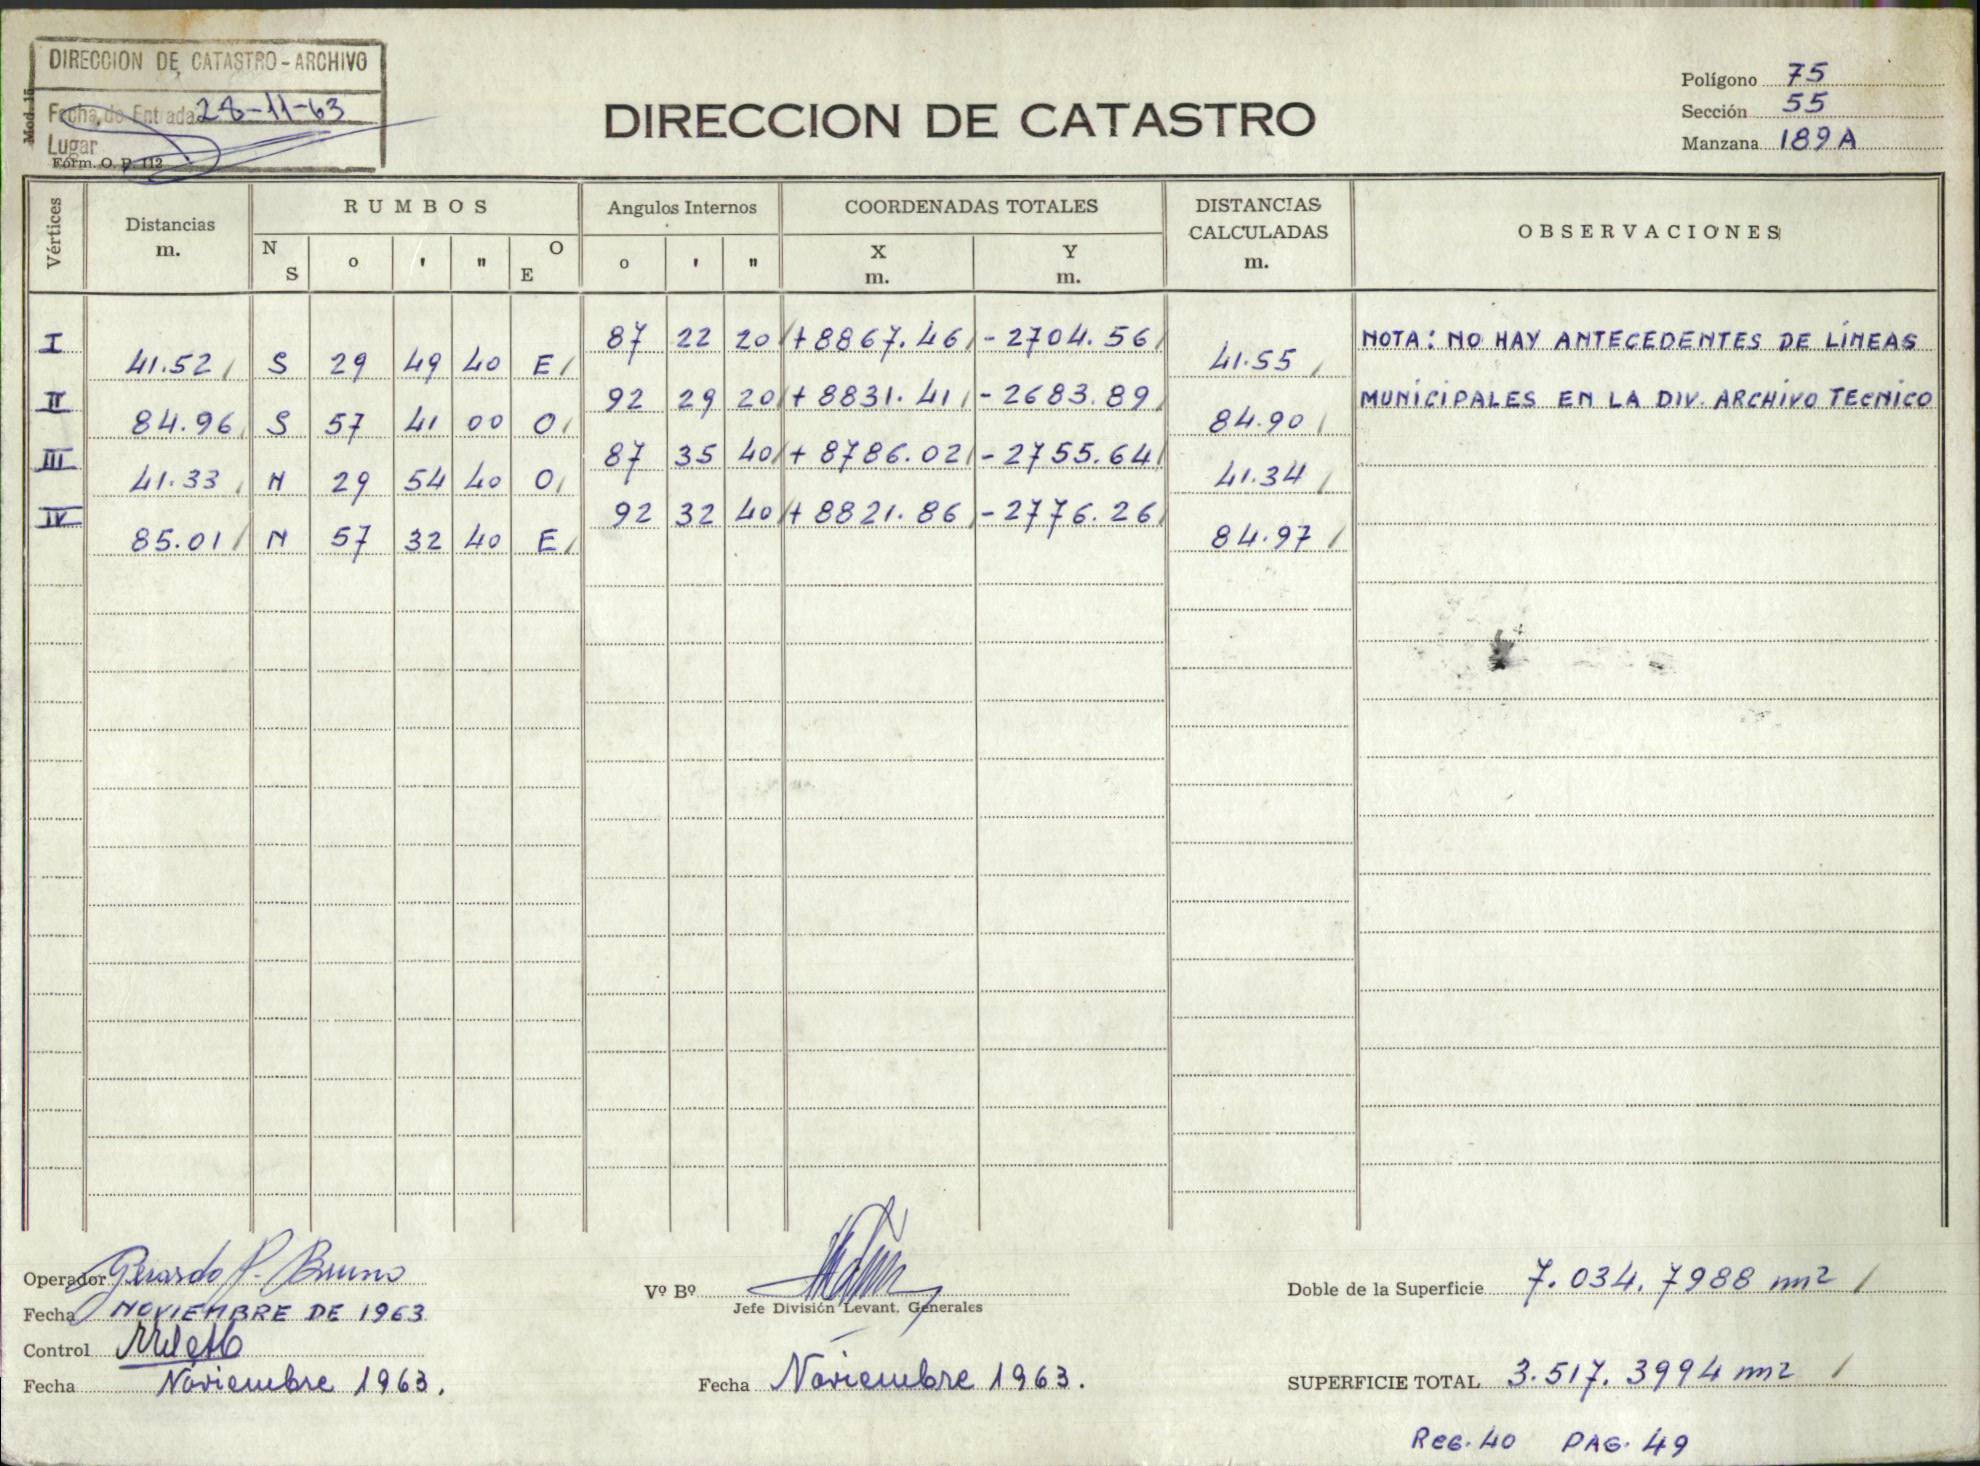 DIRECCION DE CATASTRO - ARCHIVO
Fecha de Entrada 28-11-63
Lugar
Mod. 15
Form. O. P. 112
DIRECCION DE CATASTRO
Polígono 75
Sección 55
Manzana 189A
Vértices
Distancias m.
RUMBOS
N S o ' " O E
Angulos Internos
o ' "
COORDENADAS TOTALES
X m. Y m.
DISTANCIAS CALCULADAS m.
OBSERVACIONES
I 87 22 20 +8867.46 -2704.56 NOTA: NO HAY ANTECEDENTES DE LÍNEAS
41.52 S 29 49 40 E 41.55
II 92 29 20 +8831.41 -2683.89 MUNICIPALES EN LA DIV. ARCHIVO TECNICO
84.96 S 57 41 00 O 84.90
III 87 35 40 +8786.02 -2755.64
41.33 N 29 54 40 O 41.34
IV 92 32 40 +8821.86 -2776.26
85.01 N 57 32 40 E 84.97
Operador Gerardo P. Bruno
Fecha NOVIEMBRE DE 1963
Control
Fecha Noviembre 1963.
Vº Bº
Jefe División Levant. Generales
Fecha Noviembre 1963.
Doble de la Superficie 7.034.7988 m2
SUPERFICIE TOTAL 3.517.3994 m2
REG. 40 PAG. 49